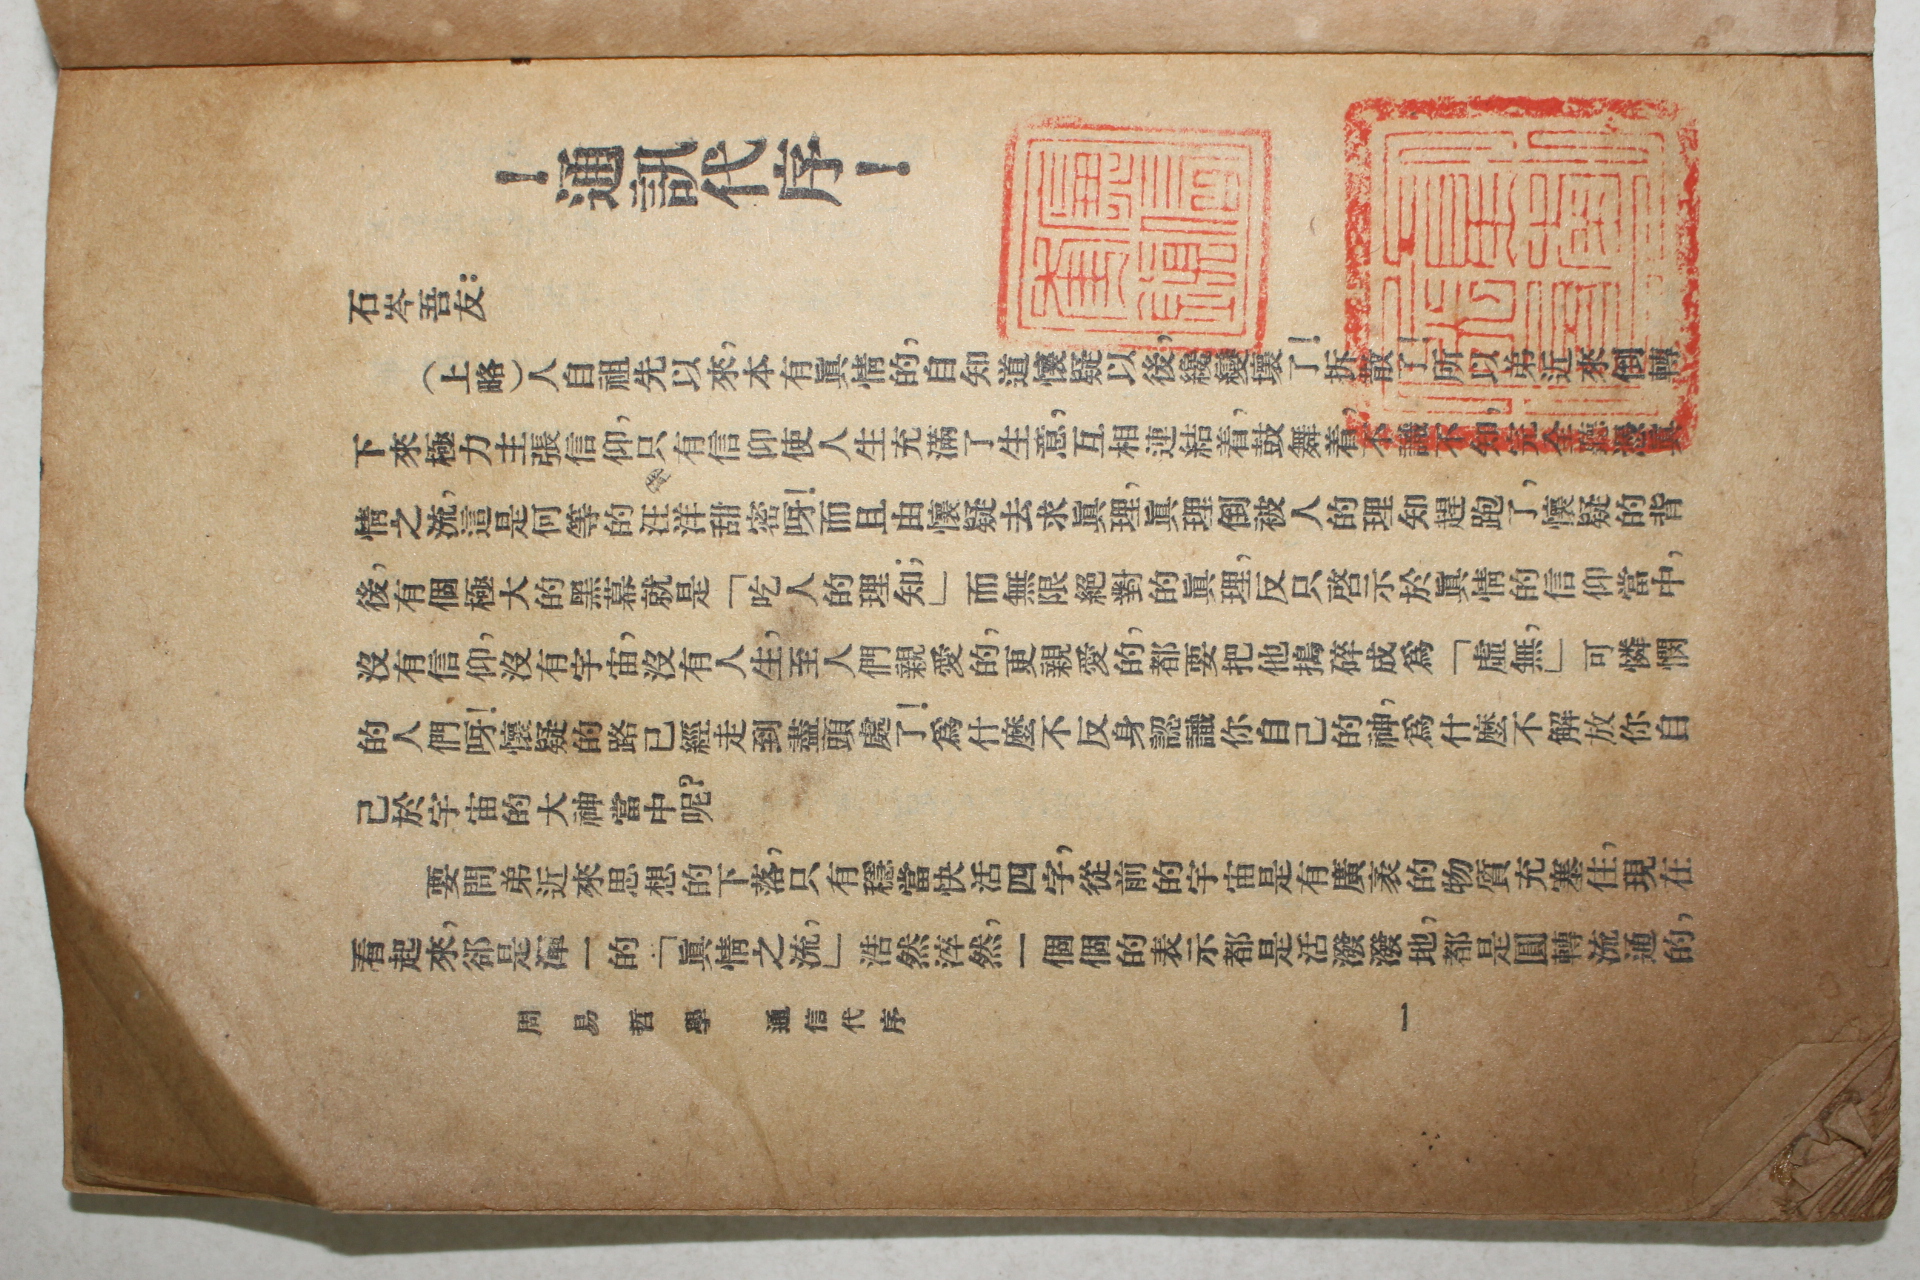 ！通訊代序！
石岑吾友：
（上略）人自祖先以來，本有眞情的，自知道懷疑以後，纔變壞了！拆散了！所以弟近來倒轉
下來極力主張信仰，只有信仰使人生充滿了生意，互相連結着，鼓舞着，不識不知，完全聽憑眞
情之流，這是何等的汪洋甜密呀！而且由懷疑去求眞理，眞理倒被人的理知趕跑了，懷疑的背
後，有個極大的黑幕就是「吃人的理知；」而無限絕對的眞理，反只啓示於眞情的信仰當中，
沒有信仰，沒有宇宙，沒有人生，至人們親愛的，更親愛的，都要把他搗碎成爲「虛無，」可憐憫
的人們呀！懷疑的路已經走到盡頭處了！爲什麼不反身認識你自己的神，爲什麼不解放你自
己於宇宙的大神當中呢？
要問弟近來思想的下落，只有穩當快活四字，從前的宇宙是有廣袤的物質充塞住，現在
看起來，卻是渾一的「眞情之流，」浩然淬然，一個個的表示都是活潑潑地，都是圓轉流通的，
周易哲學　通信代序
一